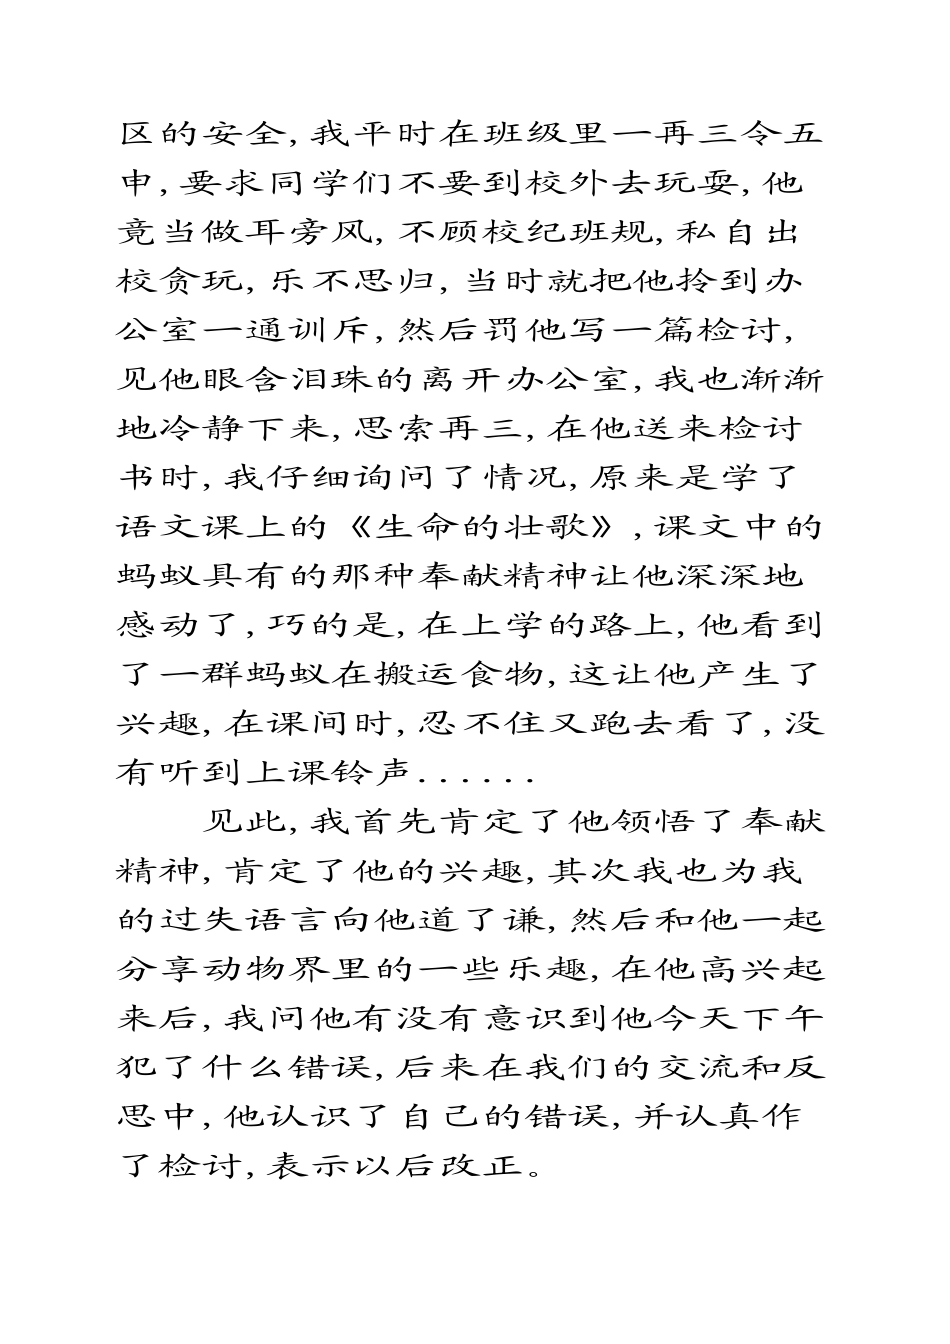 区的安全,我平时在班级里一再三令五
申,要求同学们不要到校外去玩耍,他
竟当做耳旁风,不顾校纪班规,私自出
校贪玩,乐不思归,当时就把他拎到办
公室一通训斥,然后罚他写一篇检讨,
见他眼含泪珠的离开办公室,我也渐渐
地冷静下来,思索再三,在他送来检讨
书时,我仔细询问了情况,原来是学了
语文课上的《生命的壮歌》,课文中的
蚂蚁具有的那种奉献精神让他深深地
感动了,巧的是,在上学的路上,他看到
了一群蚂蚁在搬运食物,这让他产生了
兴趣,在课间时,忍不住又跑去看了,没
有听到上课铃声......
见此,我首先肯定了他领悟了奉献
精神,肯定了他的兴趣,其次我也为我
的过失语言向他道了谦,然后和他一起
分享动物界里的一些乐趣,在他高兴起
来后,我问他有没有意识到他今天下午
犯了什么错误,后来在我们的交流和反
思中,他认识了自己的错误,并认真作
了检讨,表示以后改正。